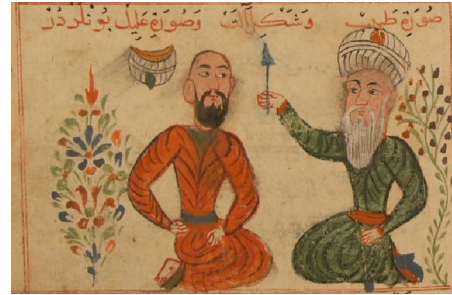 صورة طبيب وشكل آلت وصورة عليل بونلردر